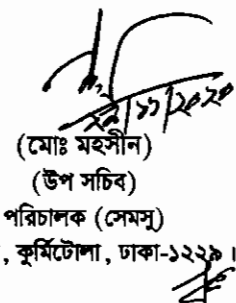 ২২/১১/২০২০
(মোঃ মহসীন)
(উপ সচিব)
পরিচালক (সেমসু)
, কুর্মিটোলা, ঢাকা-১২২৯।